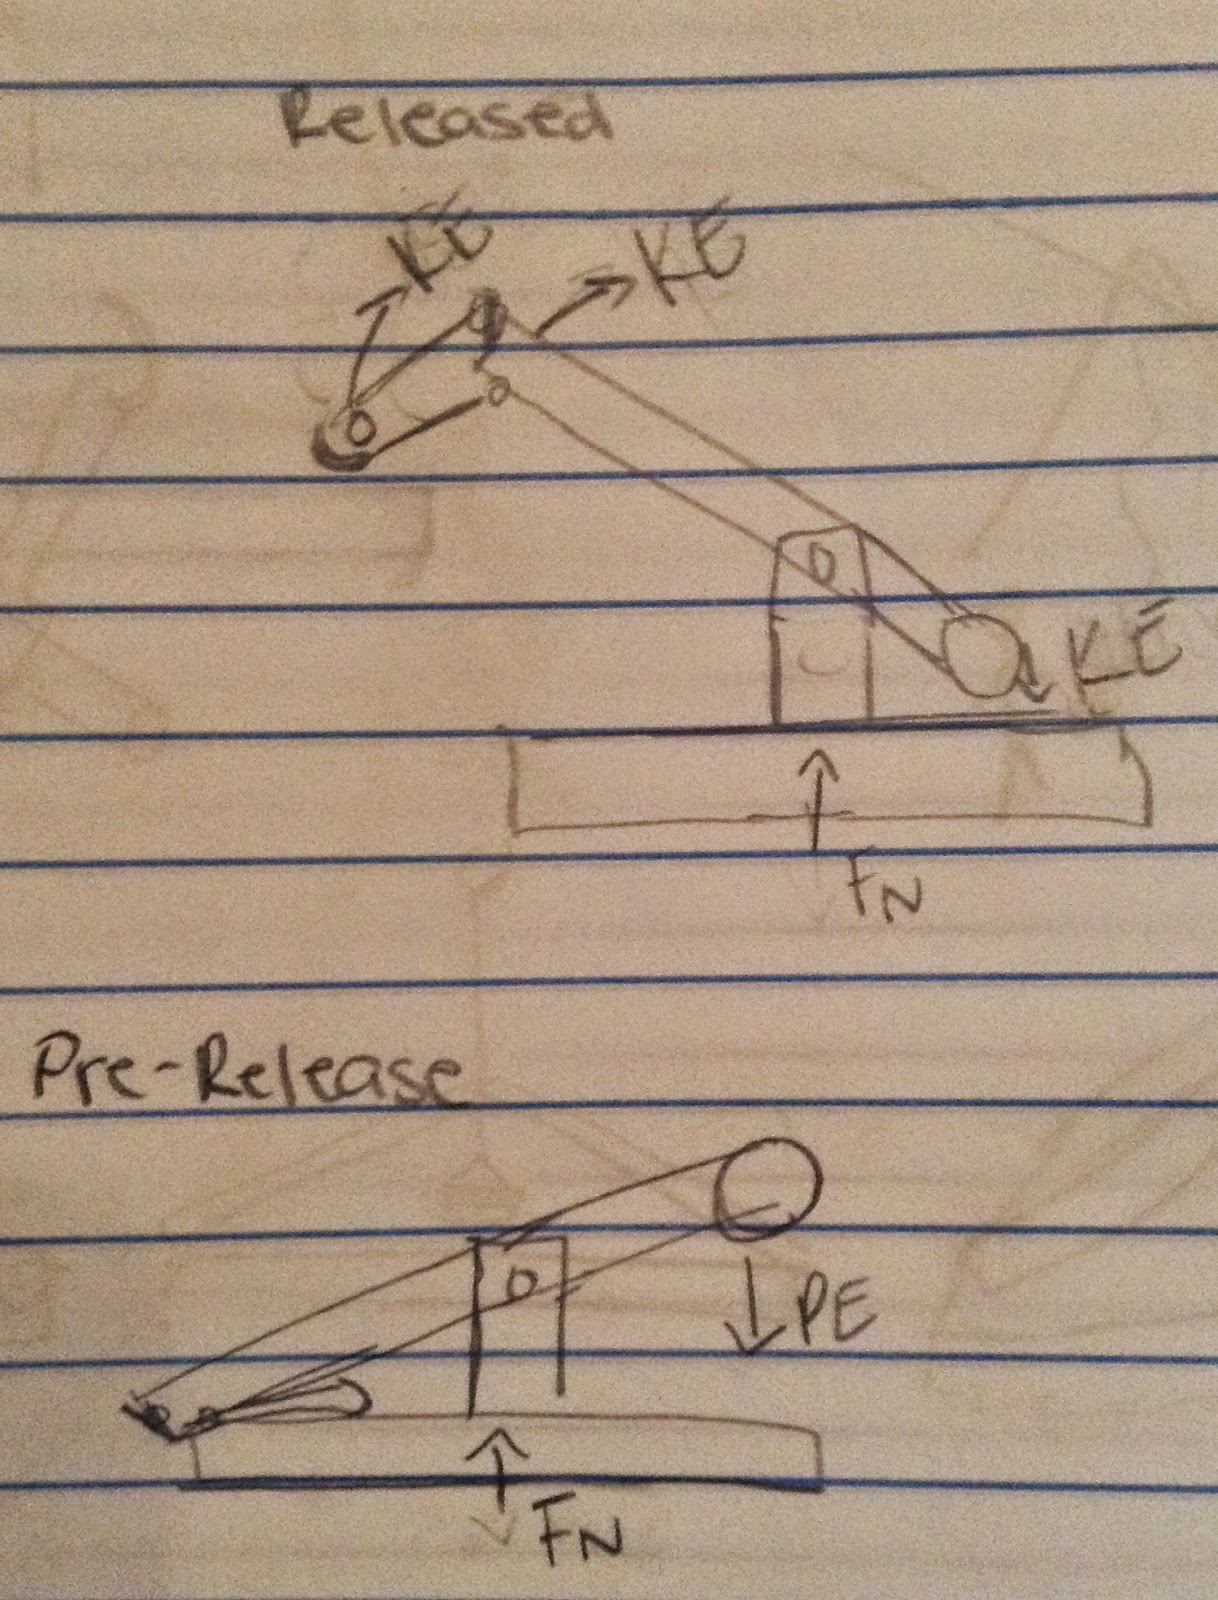 Released
KE
KE
KE
FN
Pre-Release
PE
FN